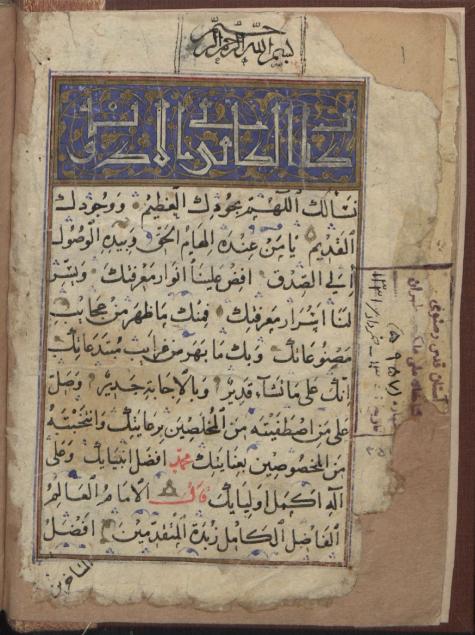 بسم الله الرحمن الرحيم
نسالك اللهم بجودك العظيم ووجودك
القديم يا من عنده الهام الحق وبيده الوصول
الى الصدق افض علينا انوار معرفتك ويسر
لنا اسرار معرفتك فمنك ما ظهر من عجايب
مصنوعاتك وبك ما بهر من غرايب مبتدعاتك
انك على ما تشاء قدير وبالاجابة جدير وصل
على من اصطفيته من المخلصين برعايتك وانتخبته
من المخصوصين بعنايتك محمد افضل انبيايك وعلى
آله اكمل اوليايك قال الامام العالم
الفاضل الكامل زبدة المتقدمين افضل
المتاخرين
آستان قدس رضوی
کتابخانه ملی ملک طهران